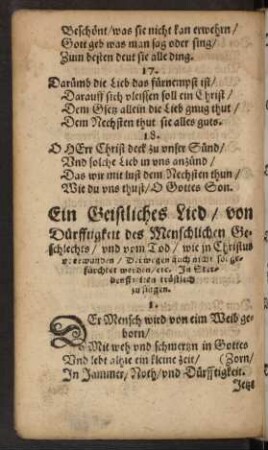 Beschönt/was sie nicht kan erwehrn/
Gott geb was man sag oder sing/
Zum besten deut sie alle ding.
17.
Darümb die Lieb das fürnempst ist/
Darauff sich vleissen soll ein Christ/
Dem Gsetz allein die Lieb gnug thut/
Dem Nechsten thut sie alles guts.
18.
O HErr Christ deck zu vnser Sünd/
Vnd solche Lieb in vns anzünd/
Das wir mit lust dem Nechsten thun/
Wie du vns thust/O Gottes Son.
Ein Geistliches Lied / von
Dürfftigkeit des Menschlichen Ge-
schlechts/ vnd vom Tod/ wie jn Christus
vberwunden/ Derwegen auch nicht so ge-
fürchtet werden/etc. In Ster-
tröstlich
zu singen.
1.
DEr Mensch wird von eim Weib ge-
born/
Mit weh vnd schmertzn in Gottes
Vnd lebt alzeit ein kleine zeit/ (Zorn/
In Jammer, Noth/vnd Dürfftigkeit.
Jetzt